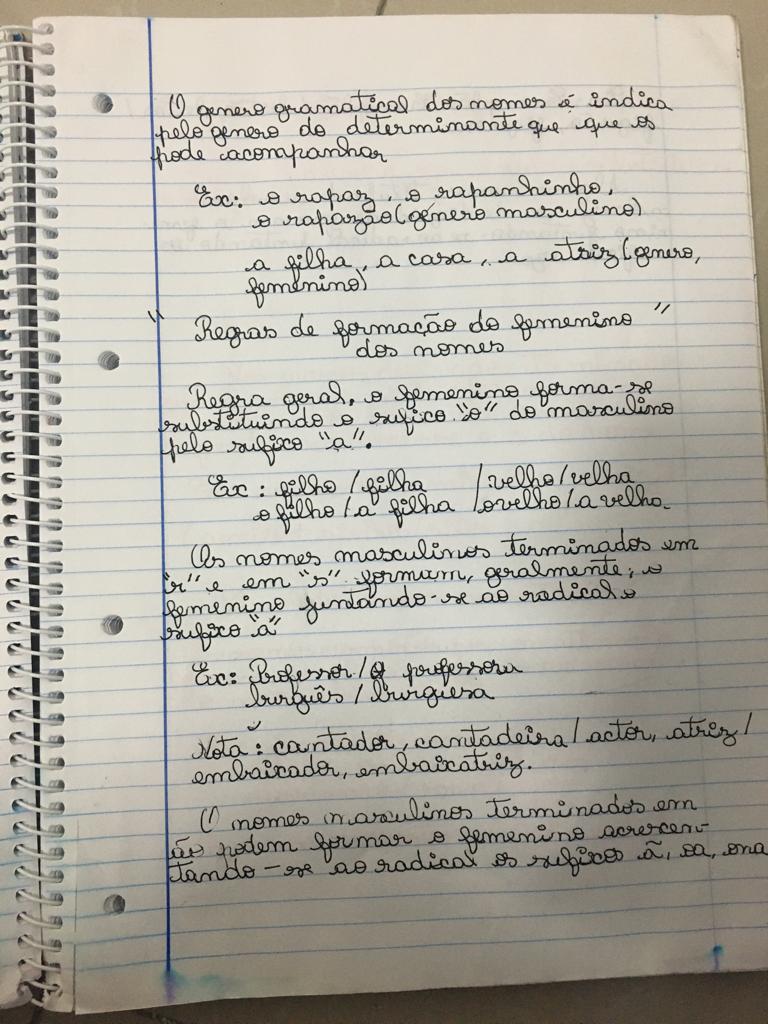 O genero gramatical dos nomes é indica
pelo genero do determinante que que os
pode acompanhar
Ex: o rapaz, o rapanhinho,
o rapazão (género masculino)
a filha, a casa, a atriz (genero,
femenino)
" Regras de formação do femenino "
dos nomes
Regra geral, o femenino forma-se
substituindo o sufico "o" do masculino
pelo sufixo "a".
Ex: filho / filha / velho / velha
o filho / a filha / ovelho / a velha.
Os nomes masculinos terminados em
"r" e em "s" formam, geralmente, o
femenino juntando-se ao radical o
sufico "a"
Ex: Professor / a professora
burguês / burguesa
Nota: cantador, cantadeira / actor, atriz /
embaixador, embaixatriz.
O nomes masculinos terminados em
ão podem formar o femenino acrescen-
tando-se ao radical os sufixos ã, oa, ona